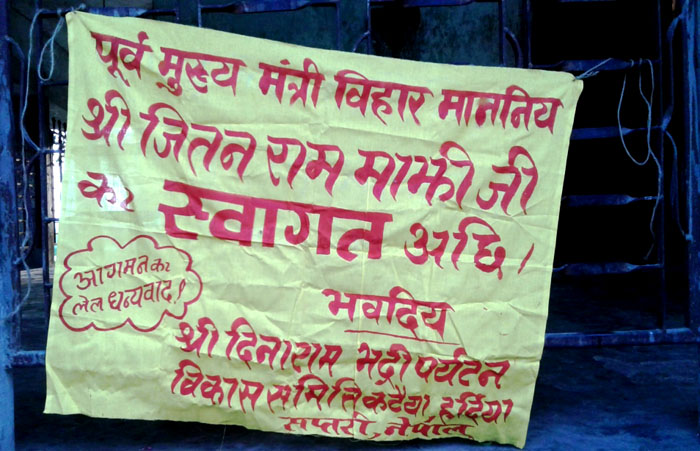 पूर्व मुख्य मंत्री विहार माननिय
श्री जितन राम माझी जी
का स्वागत अछि।
आगमन का
लेल धन्यवाद!
भवदिय
श्री दिनाराम भद्री पर्यटन
विकास समिति कटैया, हर्दिया
सप्तरी, नेपाल